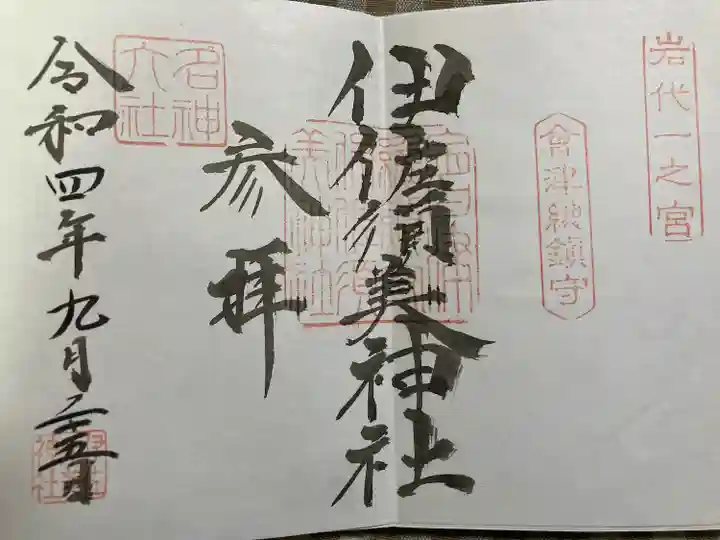 岩代一之宮
會津總鎮守
伊佐須美神社
参拝
名神
大社
令和四年九月二十五日